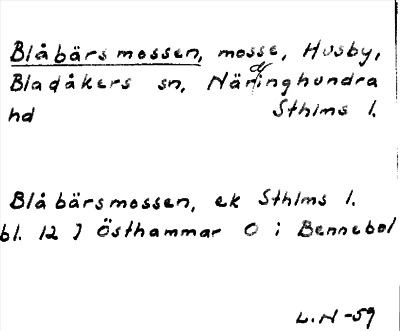 Blåbärsmossen, mosse, Husby,
Bladåkers sn, Närdinghundra
hd Sthlms l.
Blåbärsmossen, ek Sthlms l.
bl. 12 J Östhammar O i Bennebol
L.N-59